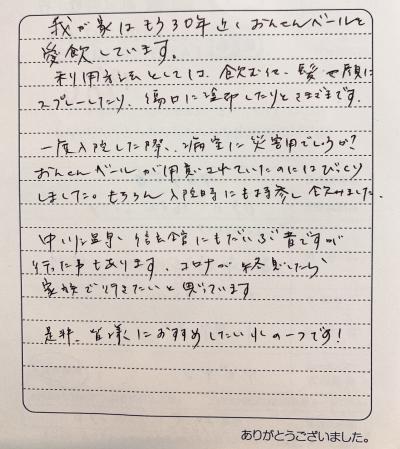 我が家はもう30年近くおんせんペールを
愛飲しています。
利用方法としては、飲むや、髪や顔に
スプレーしたり、傷口に塗布したりとさまざまです。
一度入院した際、病室に災害用でしょうか?
おんせんペールが用意されていたのにはびっくり
しました。もちろん入院時にも持参し飲みました。
中川温泉 信玄館にもだいぶ昔ですが
行った事もあります。コロナが終息したら
家族で行きたいと思っています
是非、皆様におすすめしたい水の一つです!
ありがとうございました。